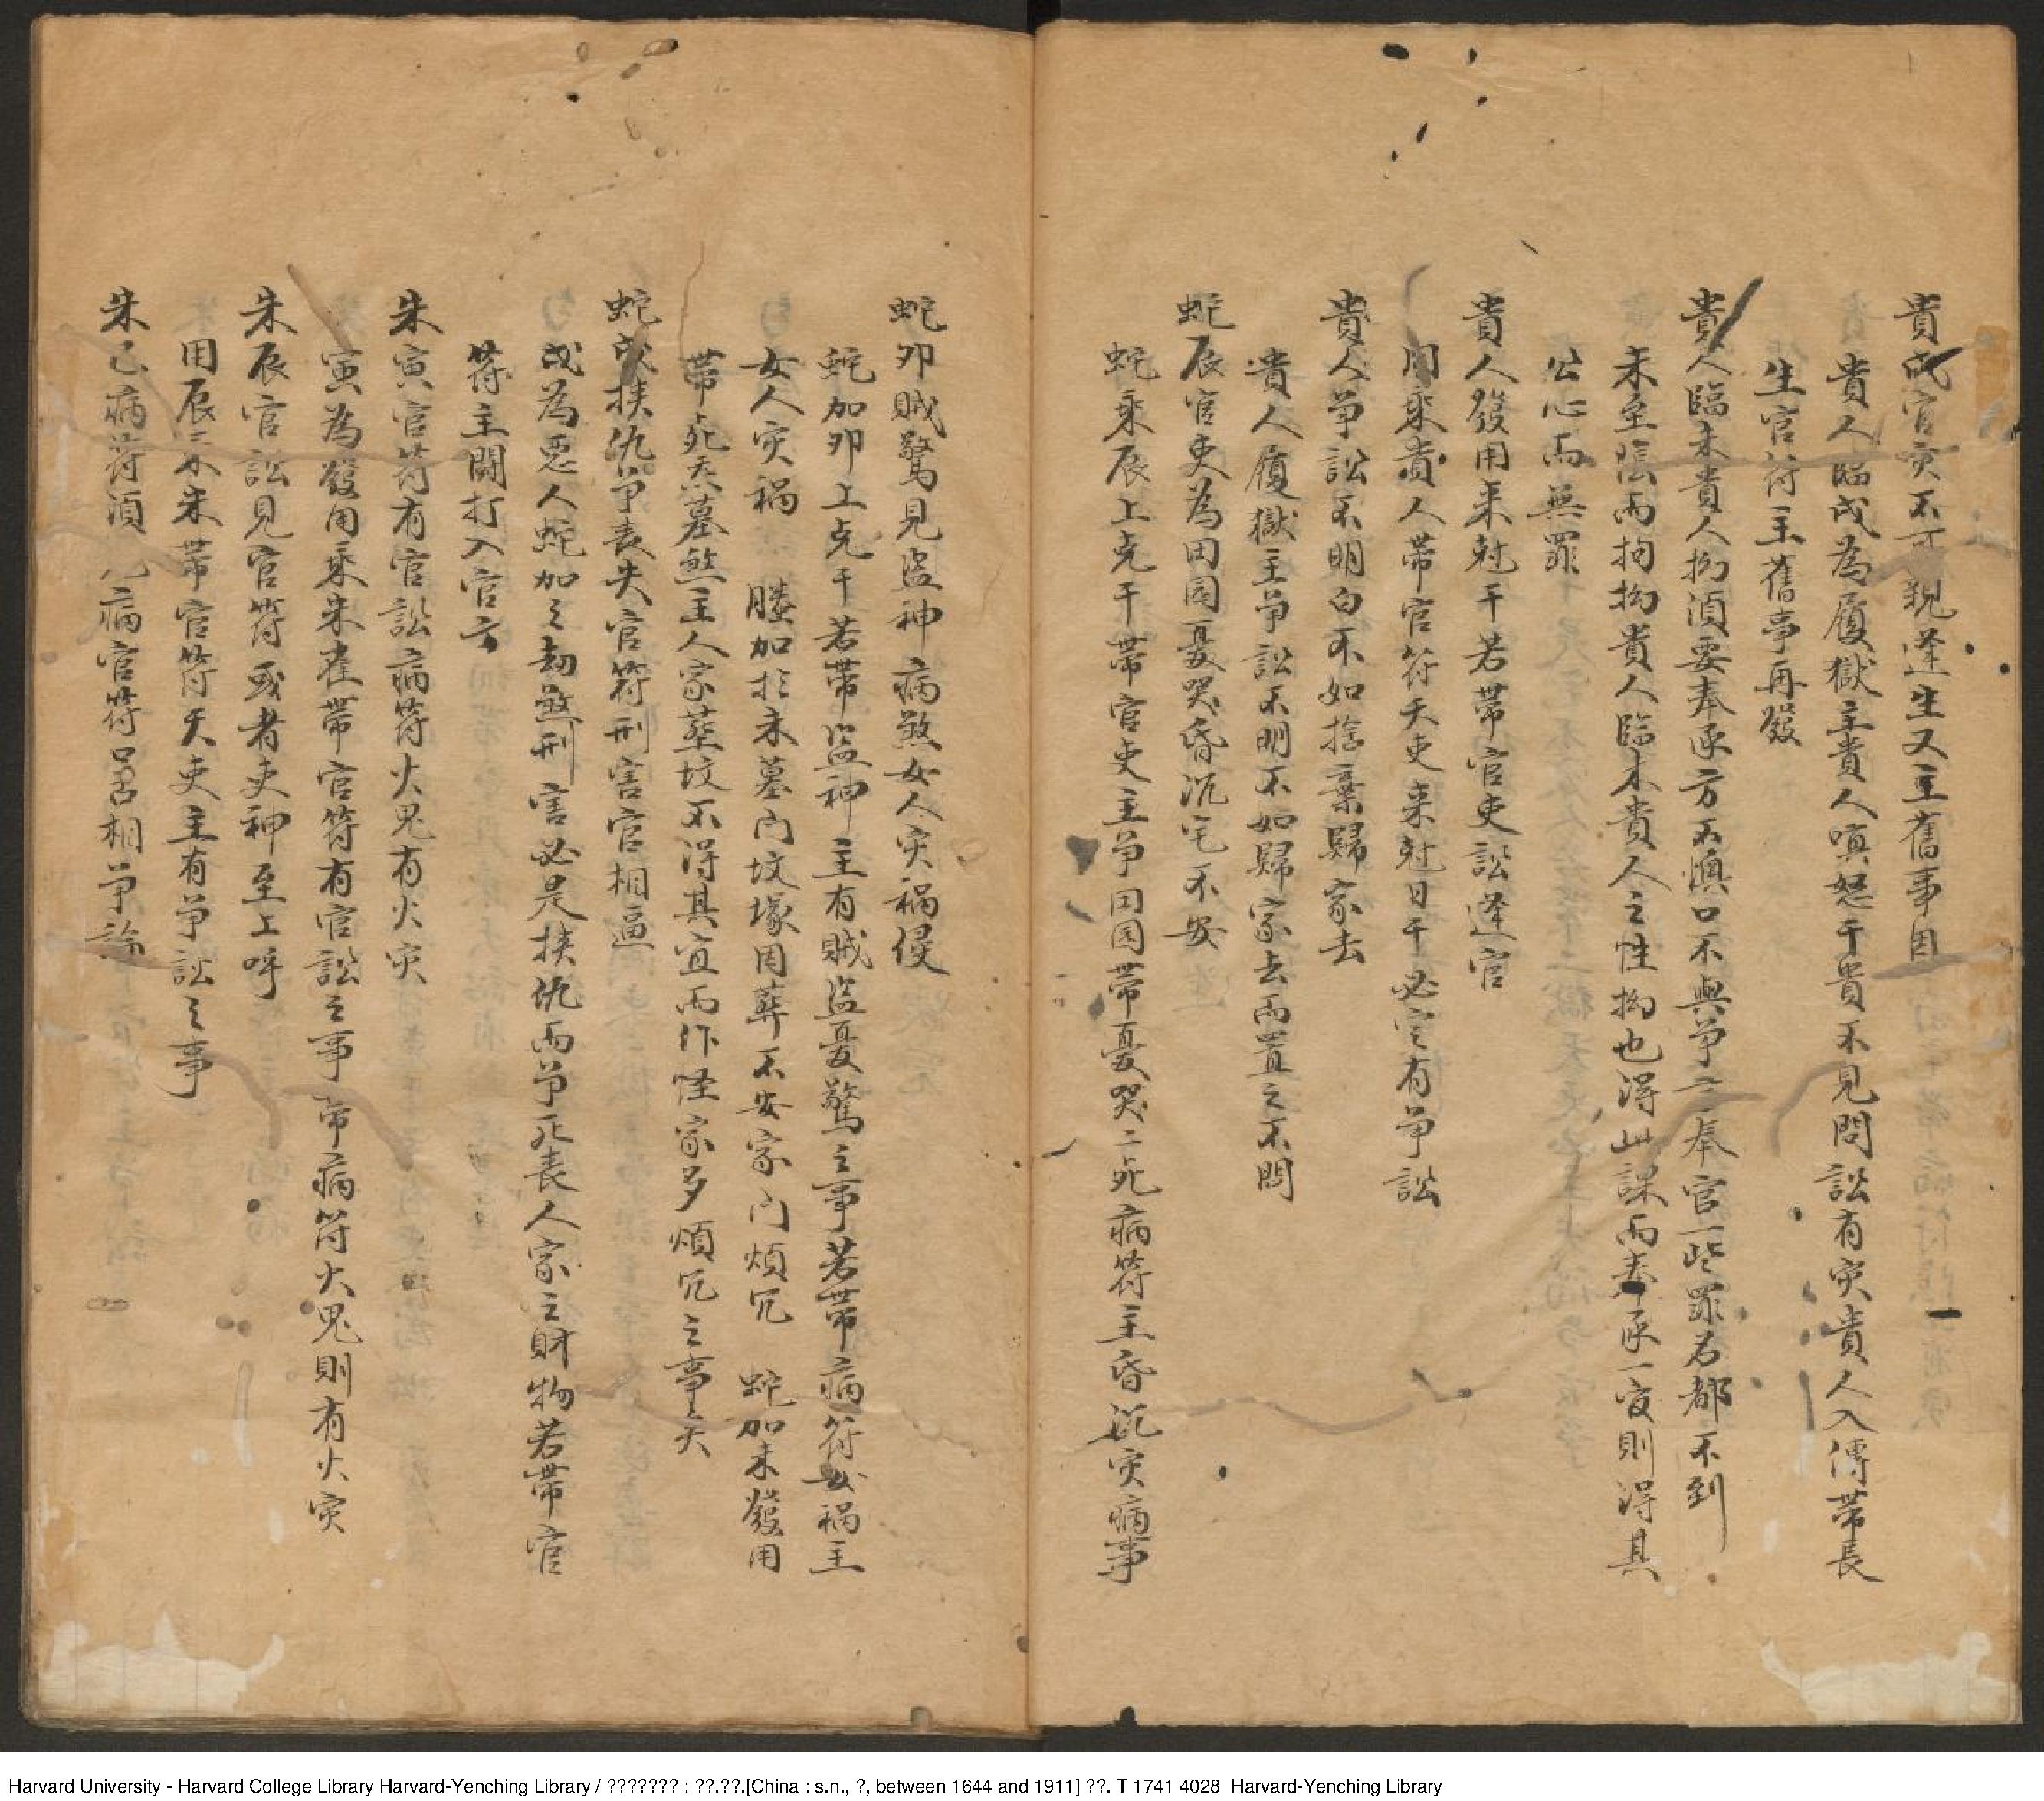 貴戌官灾不可親逢生又主舊事因
貴人臨戌為履獄主貴人嗔怒干貴不見問訟有灾貴人入傳帶長
生官符主舊事再發
貴人臨未貴人拗須要奉承方不慎口不與爭二奉官一些罪名都不到
未至陰而拘拗貴人臨未貴人之性拗也得此課而奉承一変則得其
公心而無罪
貴人發用来尅干若帶官吏訟逢官
用乘貴人帶官符天吏来尅日干必定有爭訟
貴人爭訟不明白不如捨棄歸家去
貴人履獄主爭訟不明不如歸家去而置之不問
蛇辰官吏為田園憂哭昏沉宅不安
蛇乘辰上克干帶官吏主爭田園帶憂哭二死病符主昏沉灾病事
蛇卯賊驚見盜神病煞女人灾禍侵
蛇加卯上克干若帶盜神主有賊盜憂驚之事若帶病符女禍主
女人灾禍 螣加於未墓门坟塚因葬不安家门煩冗 蛇加未發用
帶死天墓煞主人家塟坟不得其宜而作怪家多煩冗之事矣
蛇戌挟仇爭丧失官符刑害官相逼
戌為惡人蛇加之劫煞刑害必是挟仇而爭死丧人家之財物若帶官
符主鬪打入官方
朱寅官符有官訟病符火鬼有火灾
寅為發用乘朱雀帶官符有官訟之事帶病符火鬼則有火灾
朱辰官訟見官符或者吏神至上呼
用辰乘朱帶官符天吏主有爭訟之事
朱巳病符須 病官符口舌相爭論